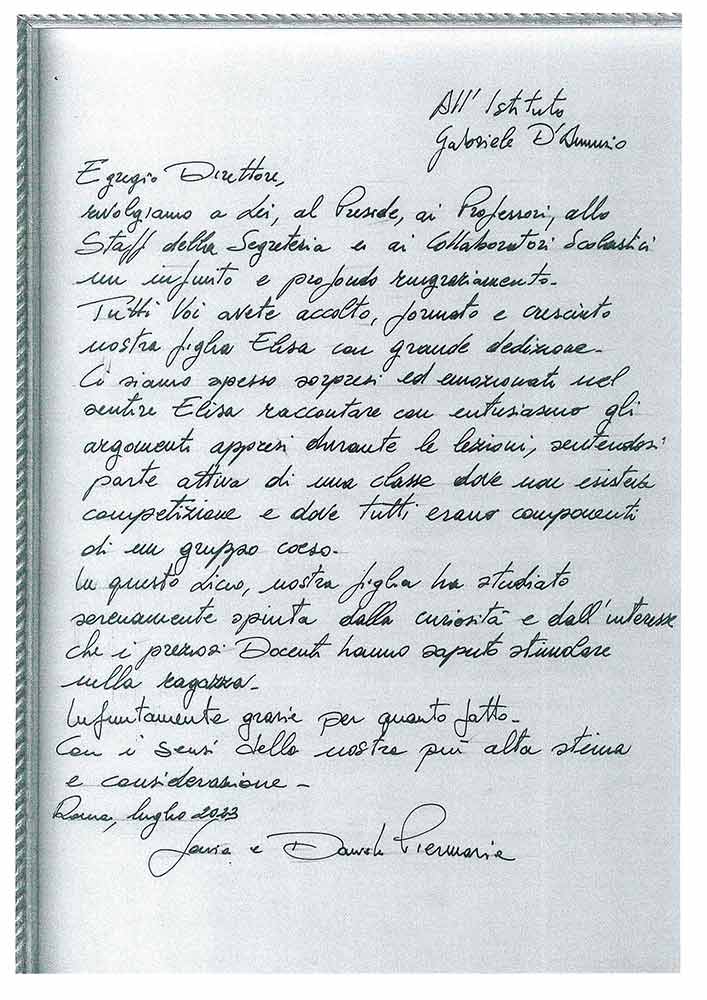 All' Istituto
Gabriele D'Annunzio
Egregio Direttore,
rivolgiamo a Lei, al Preside, ai Professori, allo
Staff della Segreteria e ai Collaboratori Scolastici
un infinito e profondo ringraziamento.
Tutti Voi avete accolto, formato e cresciuto
nostra figlia Elisa con grande dedizione.
Ci siamo spesso sorpresi ed emozionati nel
sentire Elisa raccontare con entusiasmo gli
argomenti appresi durante le lezioni, sentendosi
parte attiva di una classe dove non esisteva
competizione e dove tutti erano componenti
di un gruppo coeso.
In questo Liceo, nostra figlia ha studiato
serenamente spinta dalla curiosità e dall'interesse
che i preziosi Docenti hanno saputo stimolare
nella ragazza.
Infinitamente grazie per quanto fatto.
Con i sensi della nostra più alta stima
e considerazione.
Roma, luglio 2023
e Daniele Piermaria